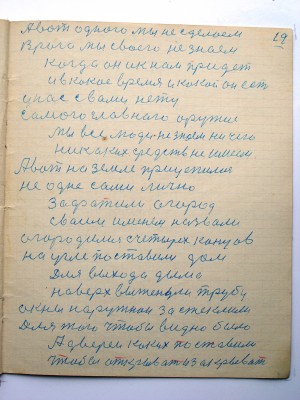 19
А вот одного мы не сделоем
Врога мы своего не знаем
Когда он ик нам придет
и в кокое время и кокой он ест
у нас с вами нету
самого главного оружие
Ми все люди не знаем ни чего
никаких средств не имеем
А вот на земле
не одне сами лично
Задратим огород
своим именем назвали
огородили с четырех канцов
на угле поставили дом
Для выхода дыма
наверх вытенули трубу
окны наружной застеклили
Для того чтобы видно было
А дверей каких поставили
чтобы открыват и закрыват